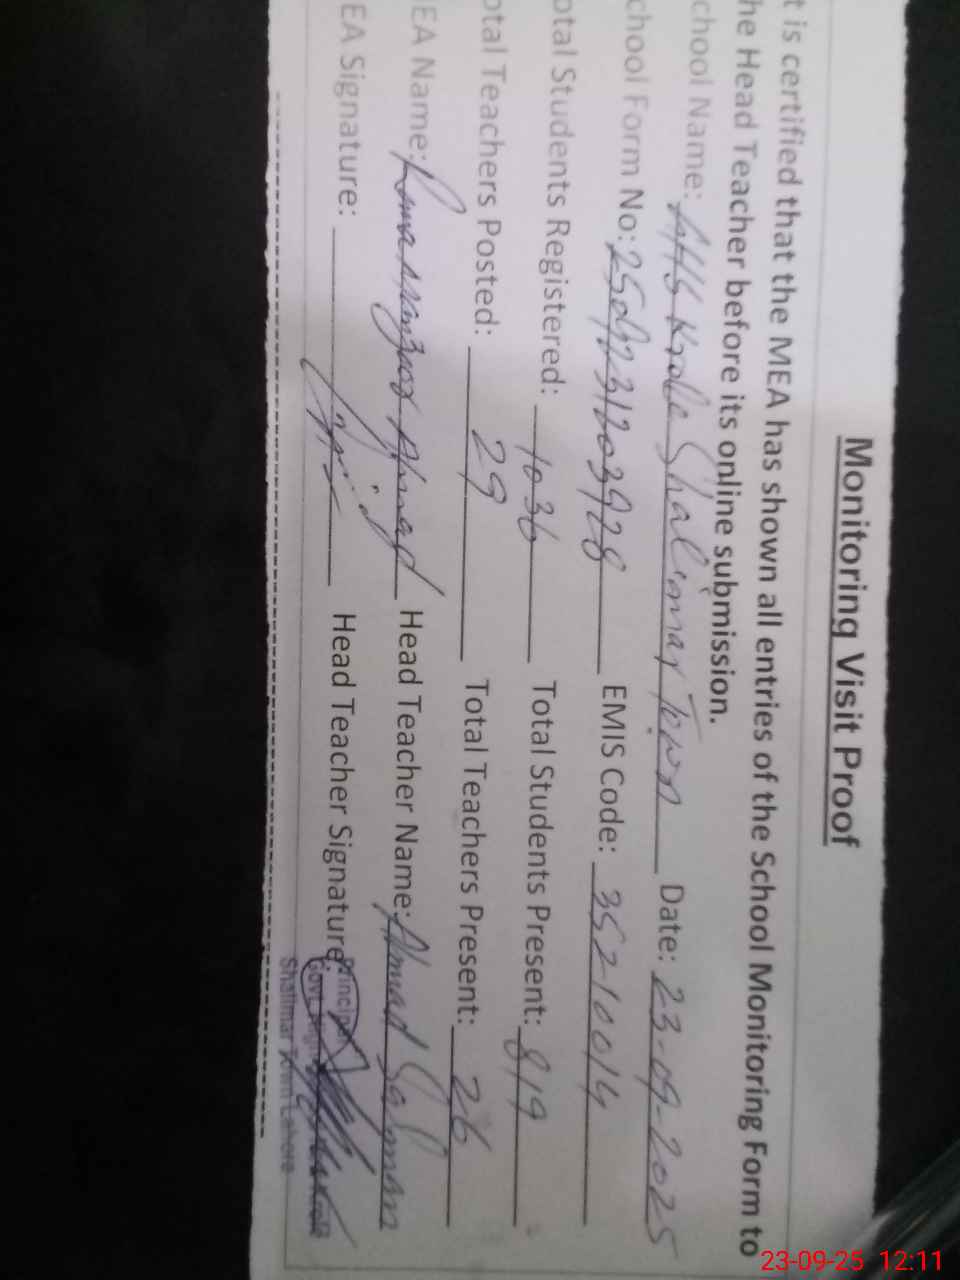 Monitoring Visit Proof
t is certified that the MEA has shown all entries of the School Monitoring Form to
he Head Teacher before its online submission.
chool Name: Shalimar Town Date: 23-09-2025
chool Form No: EMIS Code: 35210014
otal Students Registered: 1036 Total Students Present: 819
otal Teachers Posted: 29 Total Teachers Present: 26
EA Name: Ahmad Head Teacher Name: Ahmad Salman
EA Signature: Head Teacher Signature:
Principal
Govt. High
Shalimar Town Lahore
23-09-25 12:11